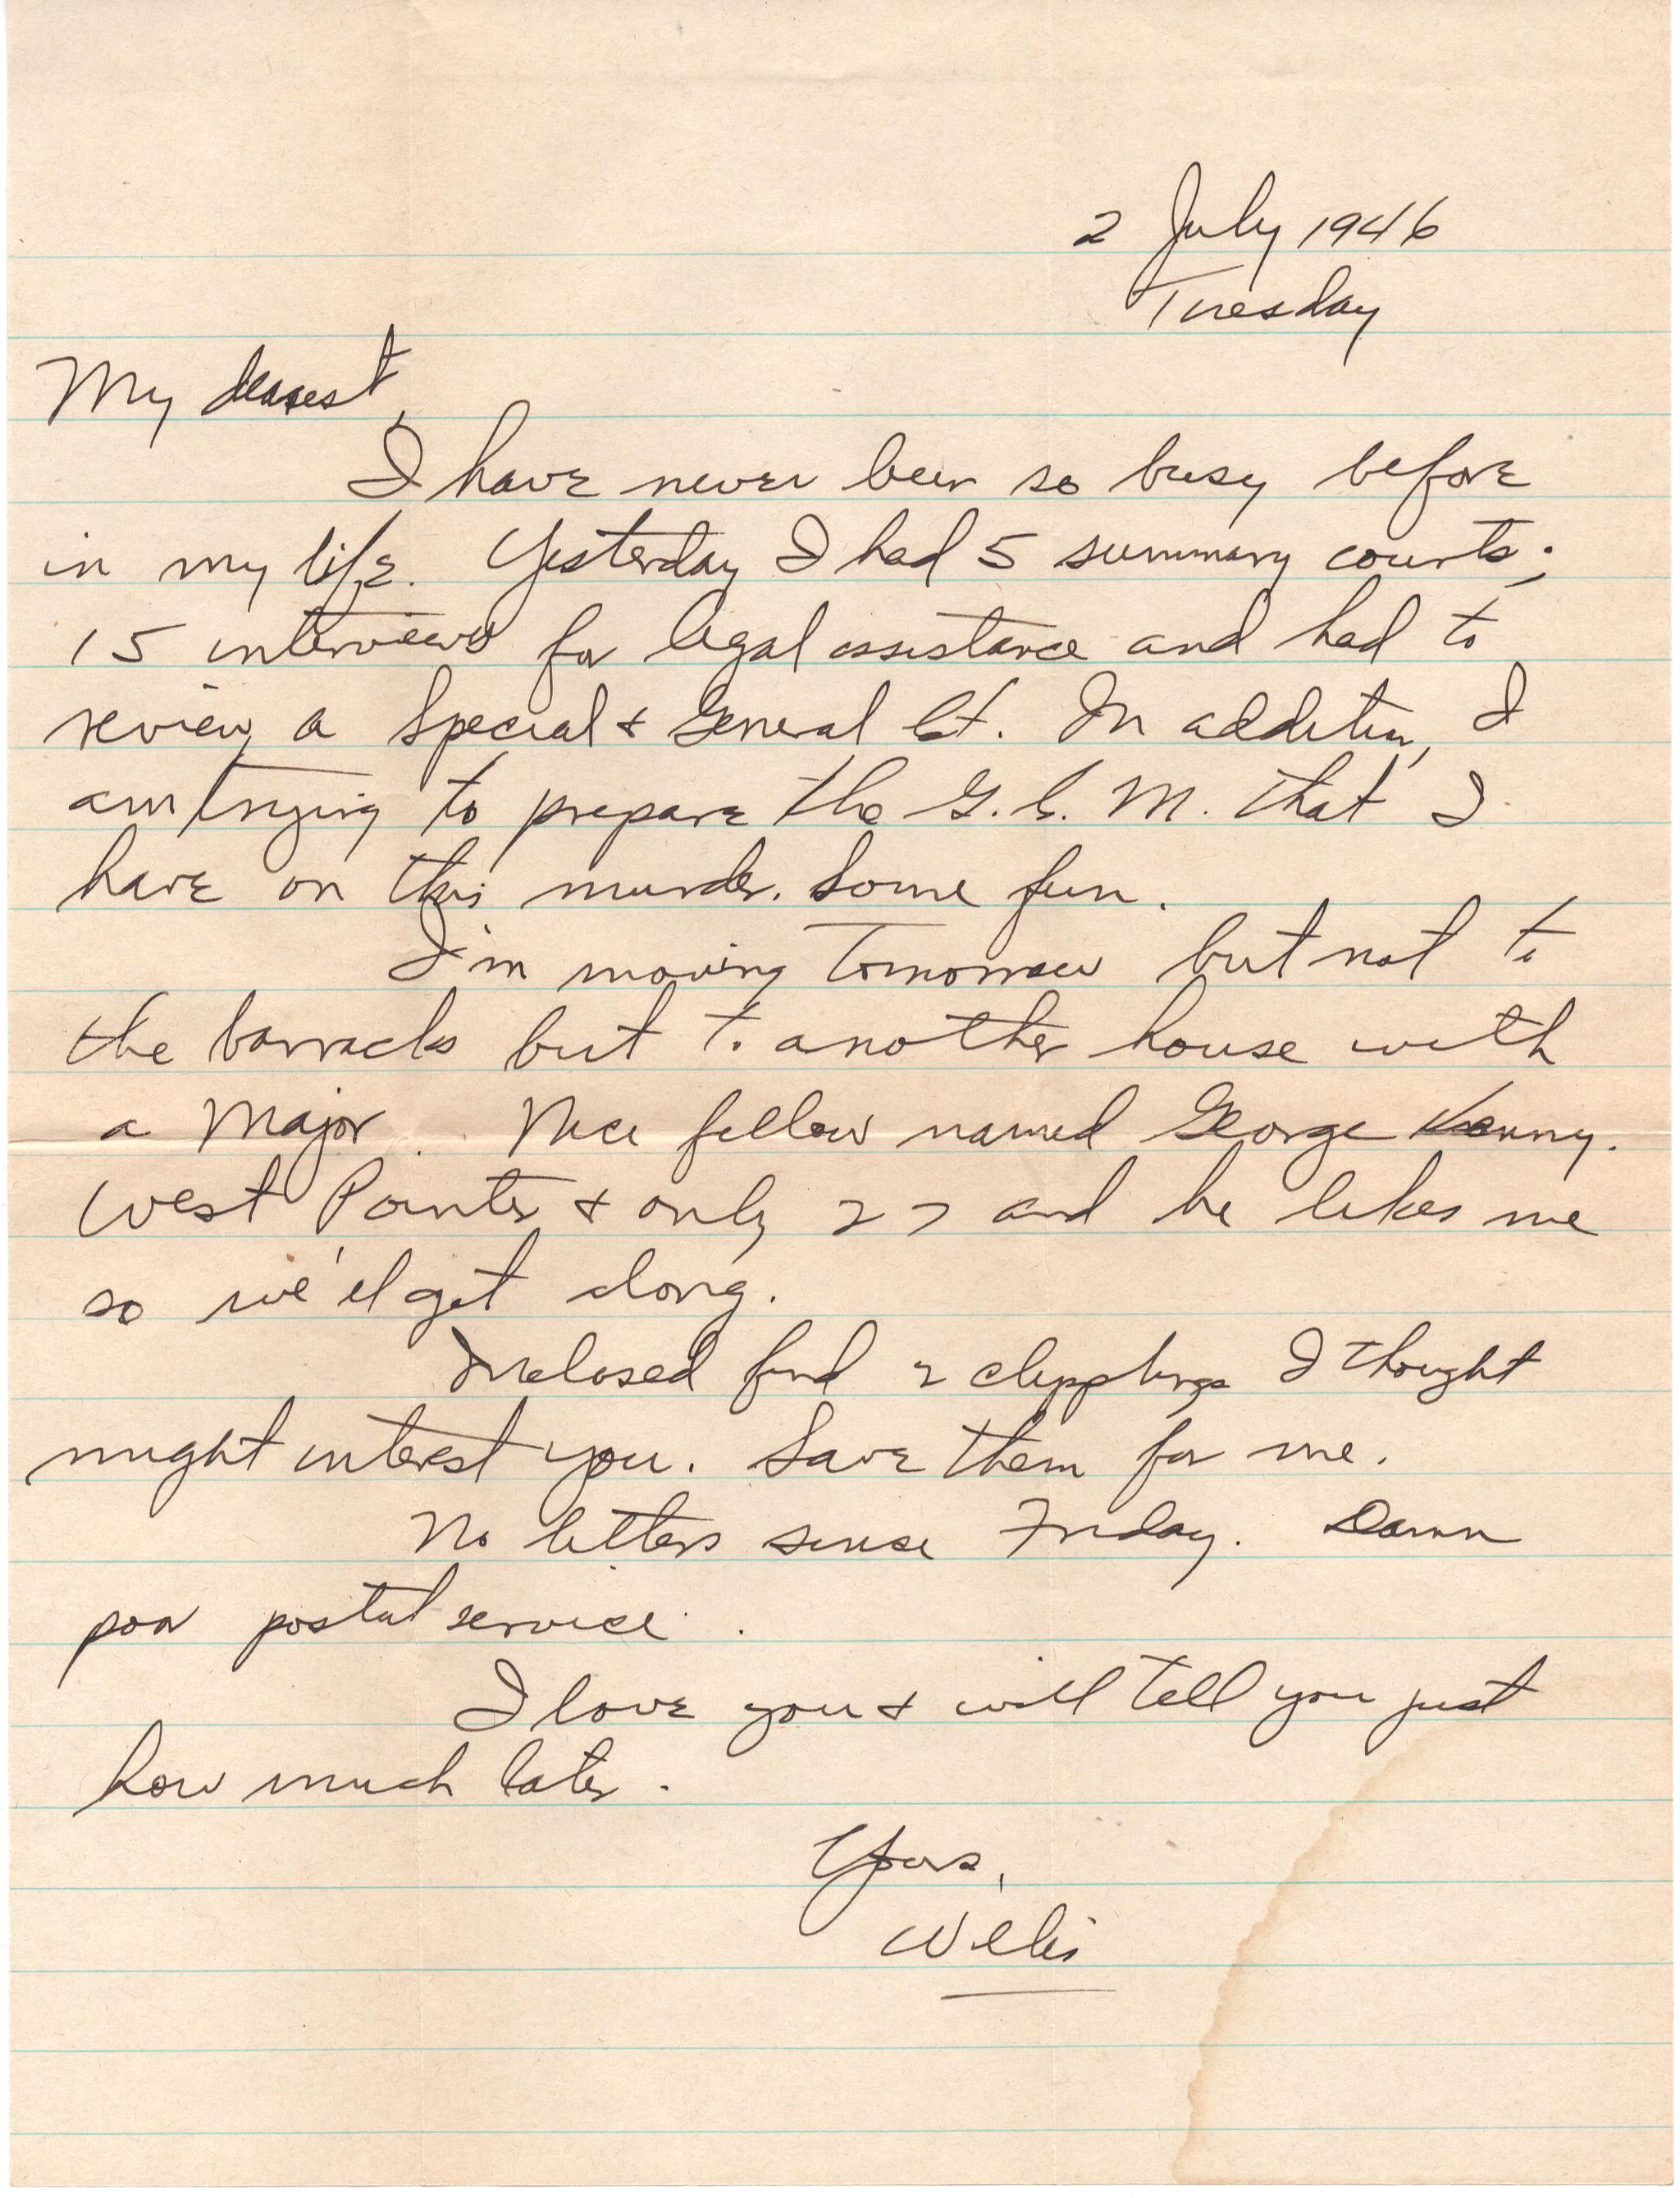 2 July 1946
Tuesday
My dearest,
I have never been so busy before
in my life. Yesterday I had 5 summary courts;
15 interviews for legal assistance and had to
review a Special & General Ct. In addition, I
am trying to prepare the G. C. M. that I
have on this murder. Some fun.
I'm moving Tomorrow but not to
the barracks but to another house with
a Major. Nice fellow named George Kenny.
West Pointer & only 27 and he likes me
so we'll get along.
Inclosed find 2 clippings I thought
might interest you. Save them for me.
No letters sense Friday. Damn
poor postal service.
I love you & will tell you just
how much later.
Yours,